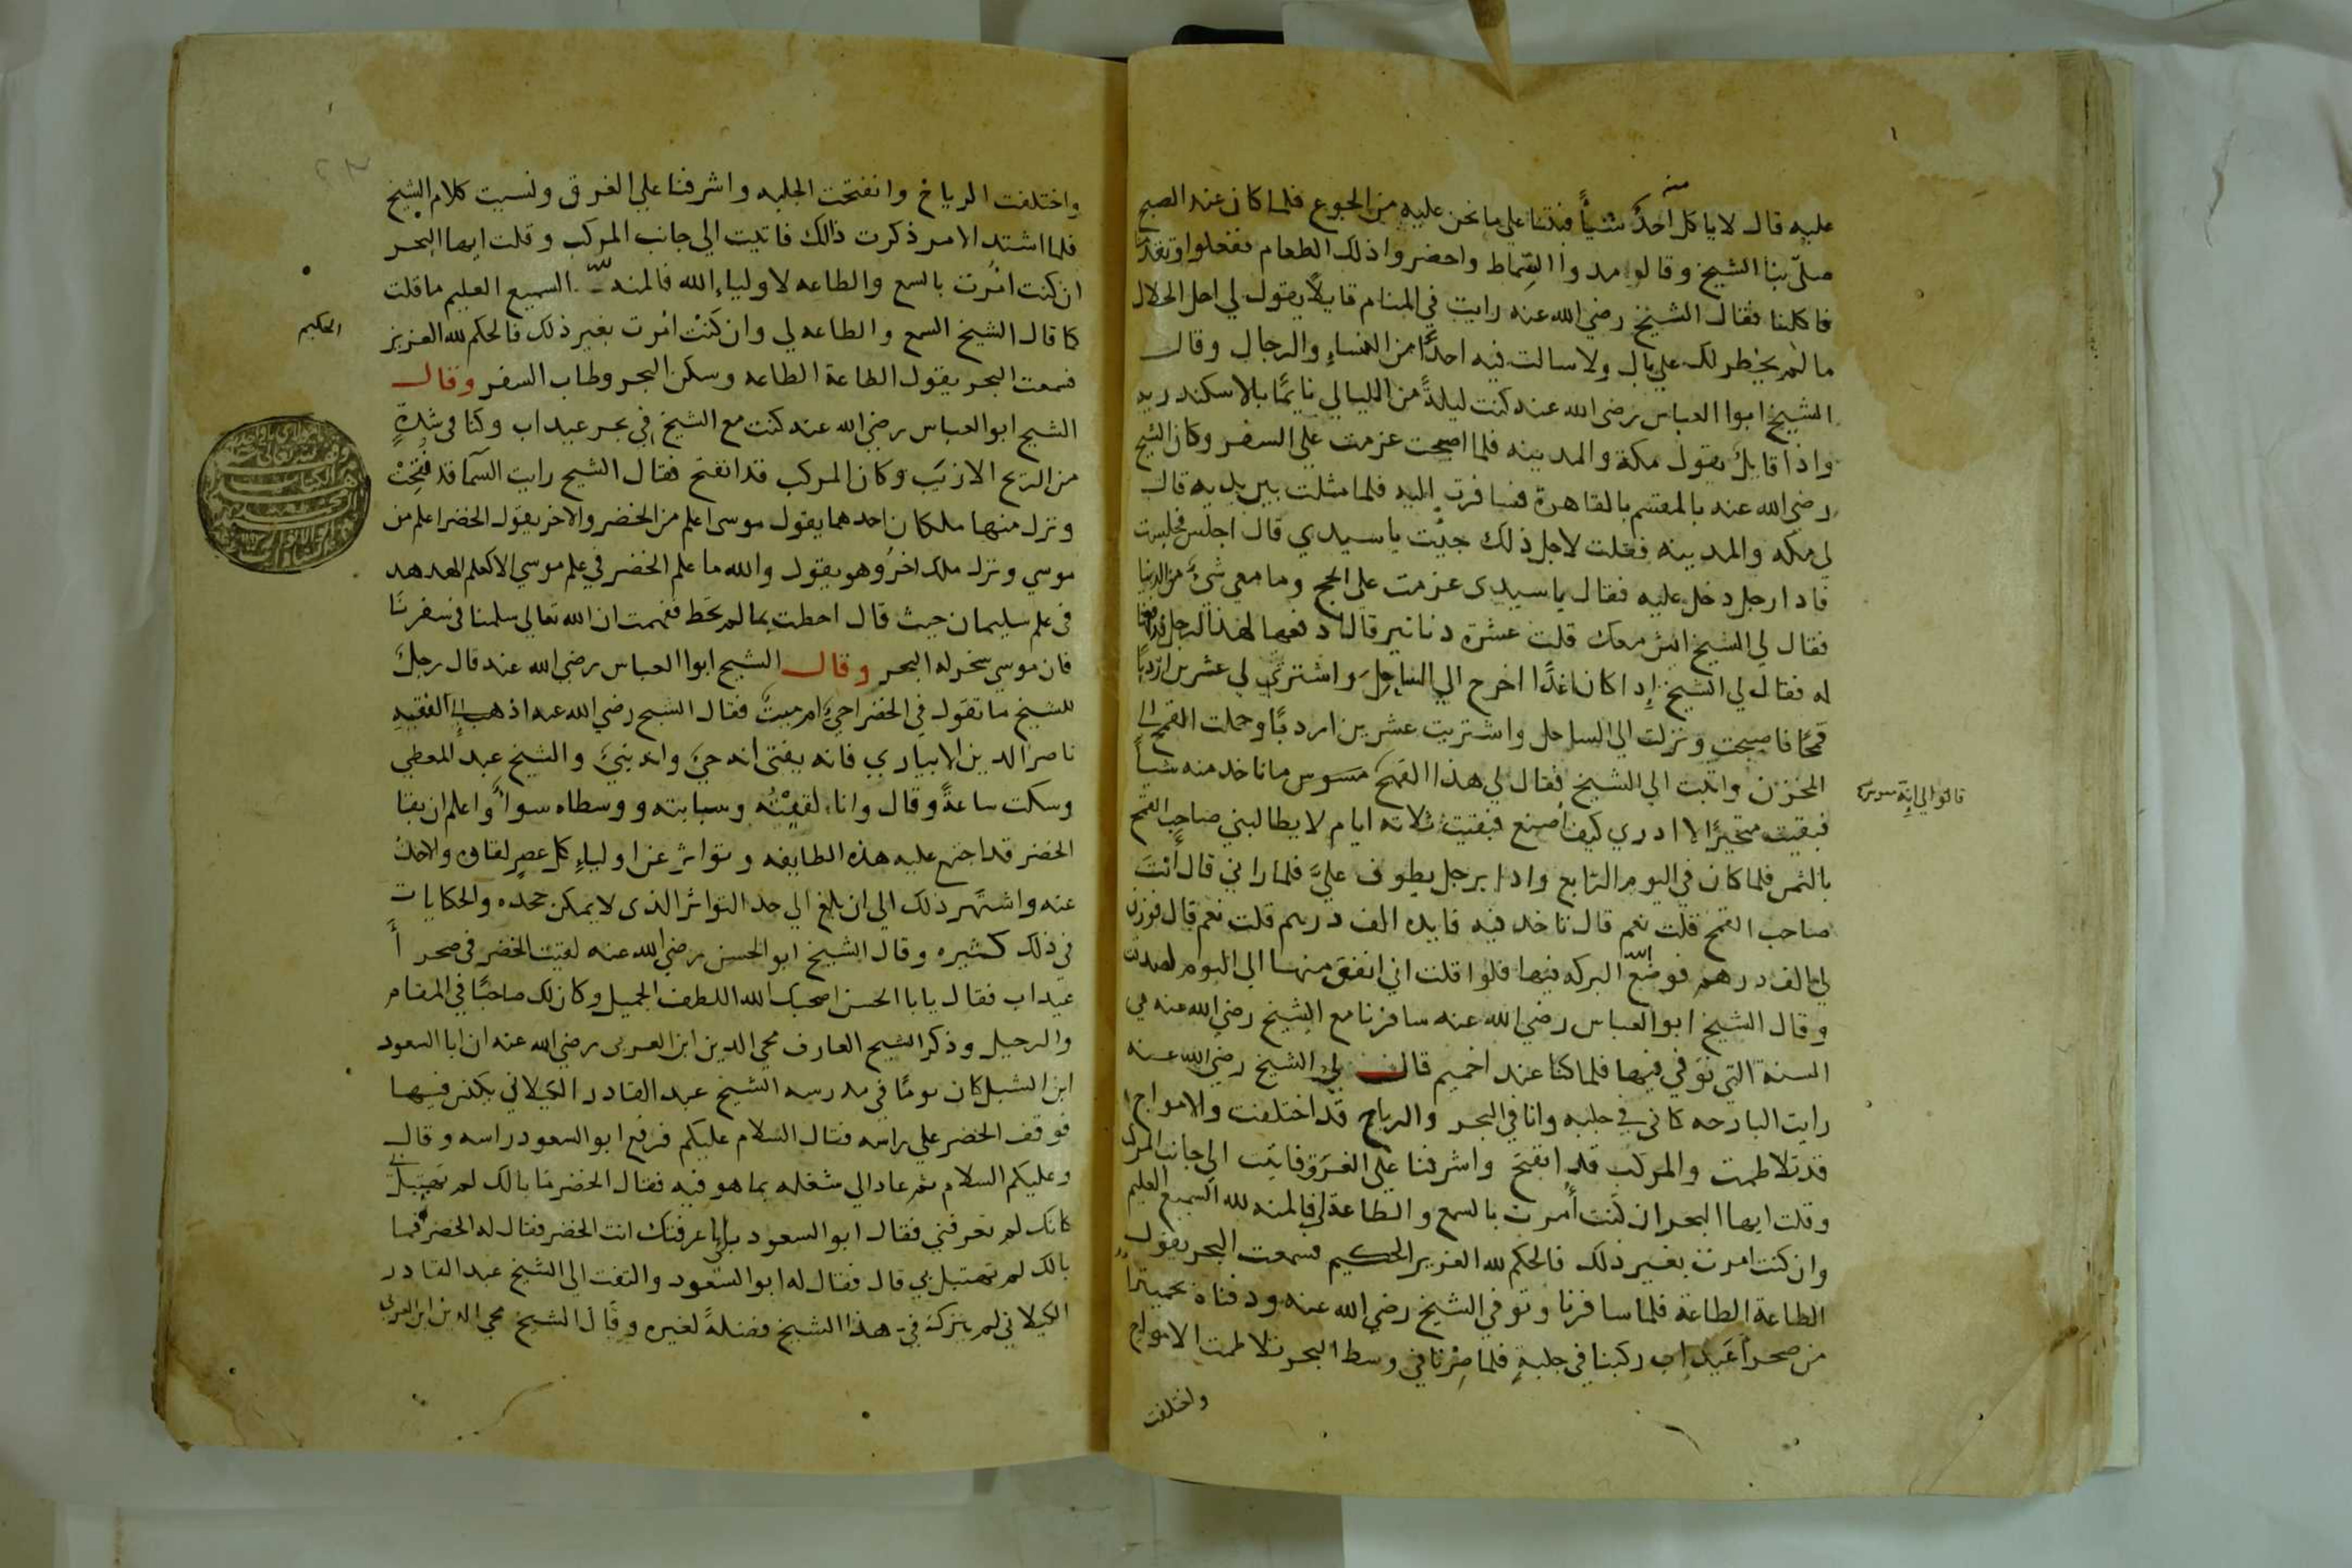 عليه قال لا ياكل احدٌ منه شيأً فبتنا علي ما نحن عليه من الجوع فلما كان عند الصبح
صلّي بنا الشيخ وقالوا مدوا السِّماط واحضروا ذلك الطعام ففعلوا وتقدمنا
فاكلنا فقال الشيخ رضي الله عنه رايت في المنام قايلاً يقول لي احل الحلال
ما لم يخطر لك علي بال ولا سالت فيه احدًا من النساء والرجال وقال
الشيخ ابوا العباس رضي الله عنه كنت ليلةً من الليالي نايمًا بالاسكندريه
واذا قايلٌ يقول مكة والمدينه فلما اصبحت عزمت علي السفر وكان الشيخ
رضي الله عنه بالمقسم بالقاهرة فسافرت اليه فلما مثلت بين يديه قال
لي مكه والمدينه فقلت لاجل ذلك جيت يا سيدي قال اجلس فجلست
فاذا رجل دخل عليه فقال يا سيدي عزمت علي الحج وما معي شيٌ من الدنيا
فقال لي الشيخ ايش معك قلت عشرة دنانير قال ادفعها لهذا الرجل فدفعتها
له فقال لي الشيخ إذا كان غدًا اخرج الي الساحل واشتري لي عشرين اردبًا
قمحًا فاصبحت ونزلت الي الساحل واشتريت عشرين اردبًا وحملت القمح الي
المخزن واتيت الي الشيخ فقال لي هذا القمح مسوس ما ناخد منه شيأً
فبقيت متحيرًا لا ادري كيف اصنع فبقيت ثلاثه ايام لا يطالبني صاحب القمح
بالثمن فلما كان في اليوم الرّابع واذا برجل يطوف عليَّ فلما راني قال أنتَ
صاحب القمح قلت نعم قال تاخد فيه فايده الف درهم قلت نعم قال فوزن
لي الف درهم فوضع الله البركه فيها فلوا قلت اني انفق منها الي اليوم لصدقت
وقال الشيخ ابوا العباس رضي الله عنه سافرنا مع الشيخ رضي الله عنه في
السنة التي توفي فيها فلما كنا عند اخميم قال لي الشيخ رضي الله عنه
رايت البارحه كاني في جلبه وانا في البحر والرياح قد اختلفت والامواج
قد تلاطمت والمركب قد انفتح واشرفنا علي الغرق فاتيت الي جانب المركب
وقلت ايها البحر ان كنت أمرت بالسمع والطاعة لي فالمنه لله السميع العليم
وان كنت امرت بغير ذلك فالحكم لله العزيز الحكيم فسمعت البحر يقول
الطاعة الطاعة فلما سافرنا وتوفي الشيخ رضي الله عنه ودفناه بحميثرا
من صحرا عيداب ركبنا في جلبةٍ فلما صرنا في وسط البحر تلاطمت الامواج
واختلفت
واختلفت الرياح وانفتحت الجلبه واشرفنا علي الغرق ونسيت كلام الشيخ
فلما اشتد الامر ذكرت ذالك فاتيت الي جانب المركب وقلت ايها البحر
ان كنت امُرت بالسمع والطاعه لاولياءِ الله فالمنه لله السميع العليم ما قلت
كما قال الشيخ السمع والطاعه لي وان كنت امُرت بغير ذلك فالحكم لله العزيز
الحكيم
فسمعت البحر يقول الطاعة الطاعه وسكن البحر وطاب السفر وقال
الشيح ابو العباس رضي الله عنه كنت مع الشيخ في بحر عيداب وكنا في شدةٍ
من الريح الازيَب وكان المركب قد انفتح فقال الشيح رايت السّما قد فُتِحَتْ
ونزل منها ملكان احدهما يقول موسي اعلم من الخضر والاخر يقول الخضر اعلم من
موسي ونزل ملك اخرُ وهو يقول والله ما علم الخضر في علم موسي الا كعلم الهدهد
في علم سليمان حيث قال احطت بما لم تحَط ففهمت ان الله تعالي سلمنا في سفرنا
فان موسي سخر له البحر وقال الشيخ ابوا العباس رضي الله عنه قال رجلٌ
للشيخ ما تقول في الخضر احيٌ ام ميتٌ فقال الشيح رضي الله عنه اذهب الي الفقيه
ناصر الدين الابياري فانه يفتي انه حيَ وانه نبيَ والشيخ عبد المعطي
وسكت ساعةً وقال وانا لقيتُه وسبابته ووسطاه سواءً واعلم ان بقا
الخضر قد اجتمع عليه هذه الطايفه وتواتر عن اولياءِ كل عصرٍ لقاه والاخذ
عنه واشتهر ذلك الي ان بلغ الي حد التواتر الذي لا يمكن جحده والحكايات
في ذلك كثيره وقال الشيخ ابو الحسن رضي الله عنه لقيت الخضر في صحرا
عيداب فقال يابا الحسن اصحبك الله اللطف الجميل وكان لك صاحبًا في المقام
والرحيل وذكر الشيح العارف محي الدين ابن العربي رضي الله عنه ان ابا السعود
ابن الشبل كان يومًا في مدرسه الشيخ عبد القادر الكيلاني يكنس فيها
فوقف الخضر علي راسه فقال السلام عليكم فرفع ابو السعود راسه وقال
وعليكم السلام ثم عاد الي شغله بما هو فيه فقال الخضر ما بالك لم تهتبل بي
كانك لم تعرفني فقال ابو السعود بلي عرفتك انت الخضر فقال له الخضر فما
بالك لم تهتبل بي قال فقال له ابو السعود والتفت الي الشيخ عبد القادر
الكيلاني لم يترك فيَّ هذا الشيخ فضلةً لغيره وقال الشيخ محي الدين ابن العربي